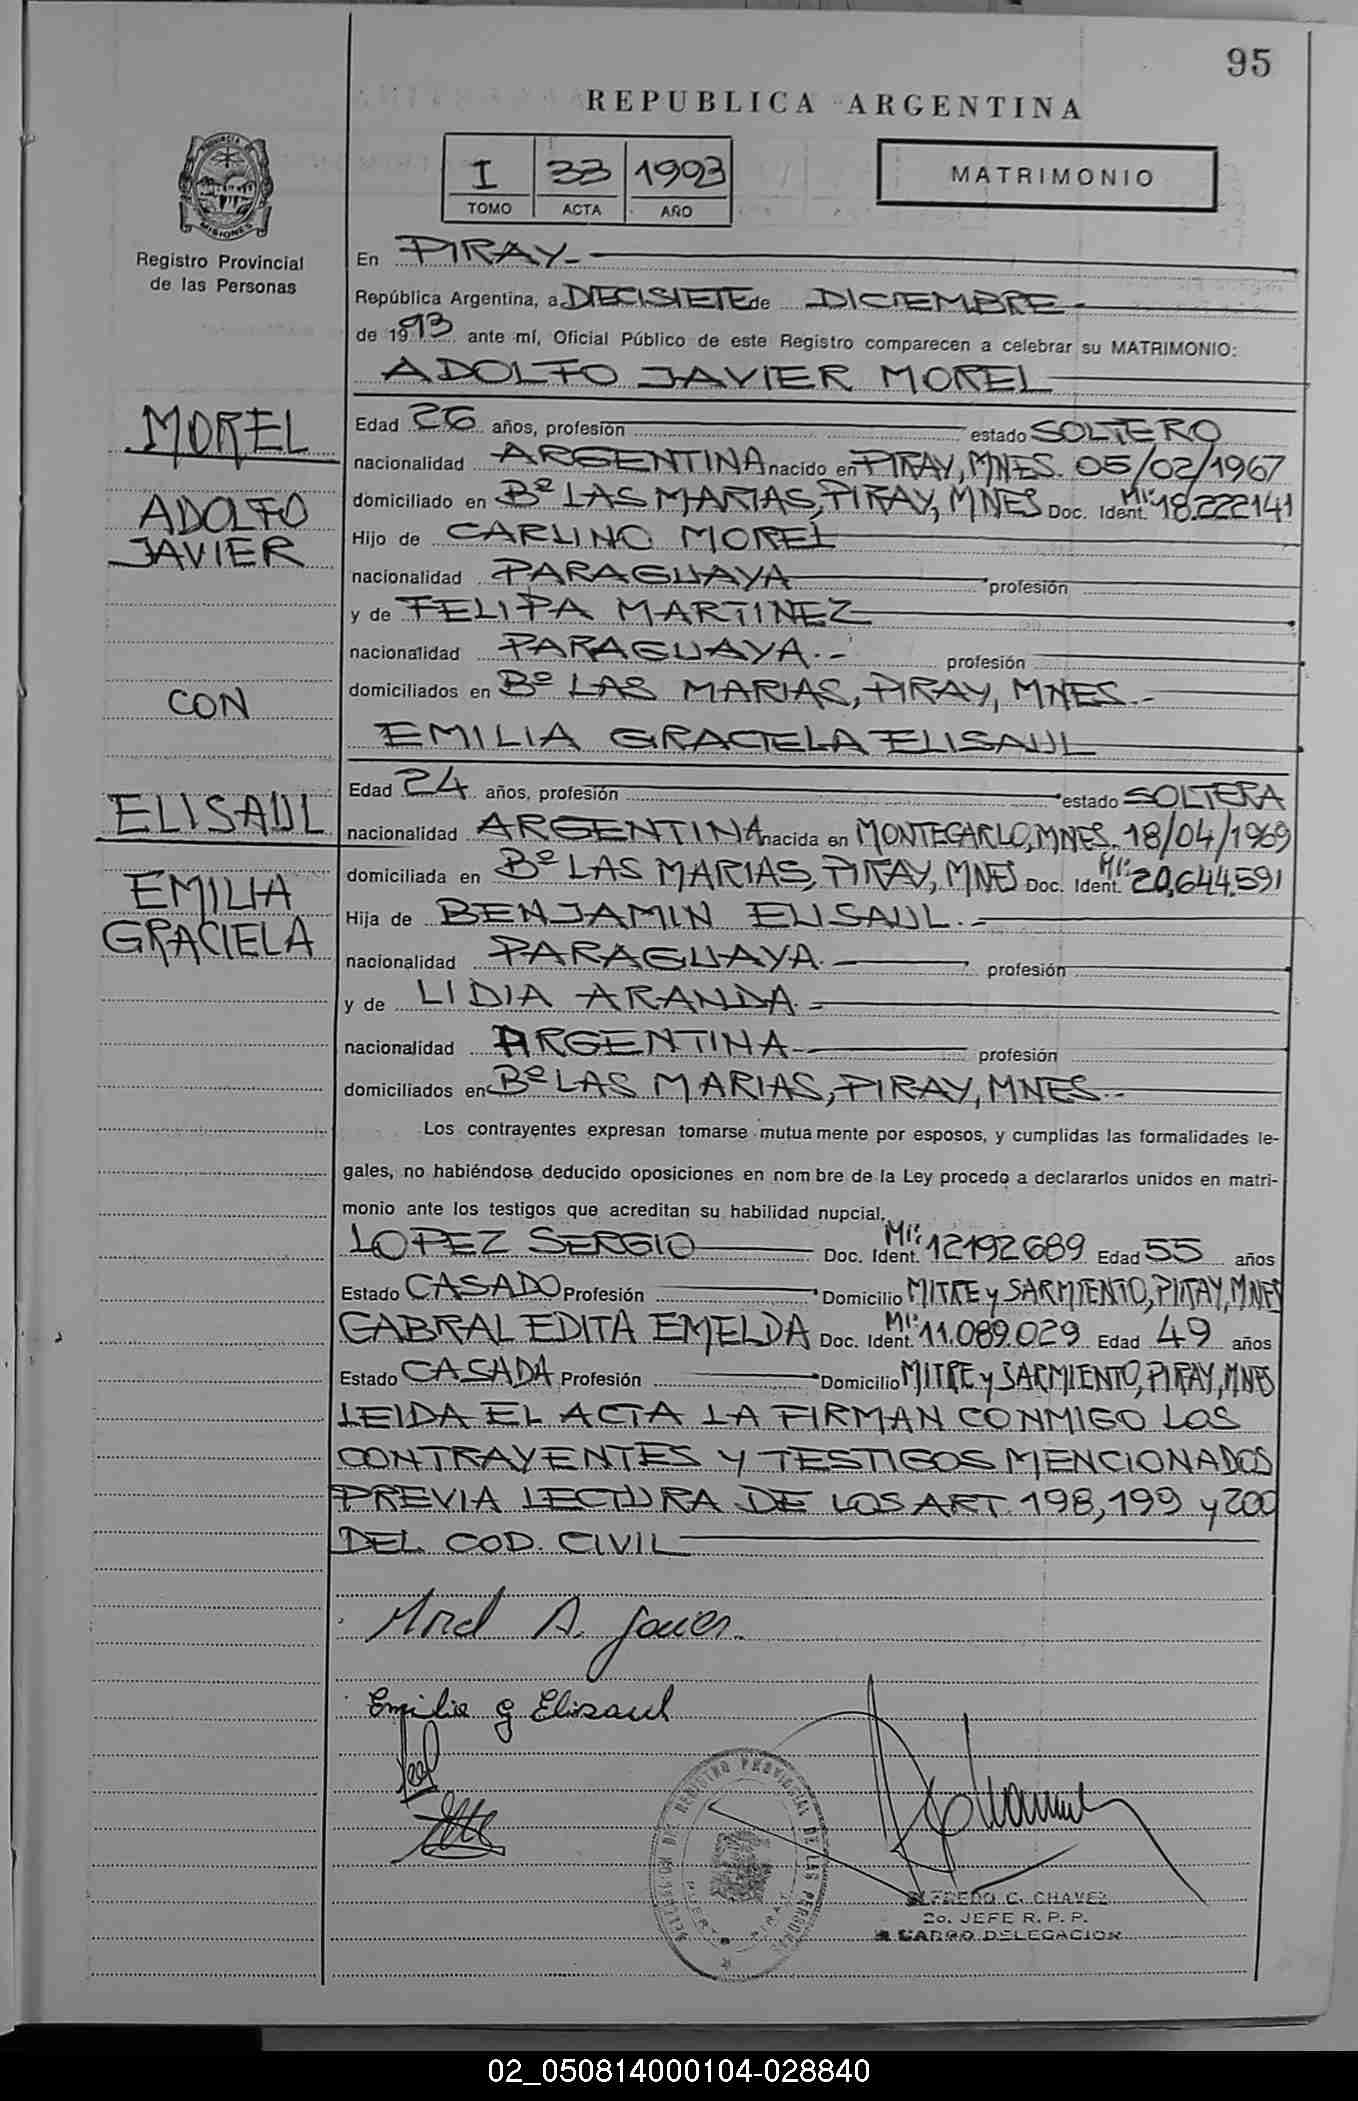 95
REPUBLICA ARGENTINA
I 33 1993
TOMO ACTA AÑO
MATRIMONIO
PROVINCIA DE MISIONES
Registro Provincial
de las Personas
En PIRAY.-
República Argentina, a DIECISIETE de DICIEMBRE.-
de 1993 ante mí, Oficial Público de este Registro comparecen a celebrar su MATRIMONIO:
ADOLFO JAVIER MOREL
MOREL
ADOLFO
JAVIER
CON
ELISAUL
EMILIA
GRACIELA
Edad 26 años, profesión estado SOLTERO
nacionalidad ARGENTINA nacido en PIRAY, MNES. 05/02/1967
domiciliado en Bº LAS MARIAS, PIRAY, MNES Doc. Ident. MI: 18.222141
Hijo de CARLINO MOREL
nacionalidad PARAGUAYA profesión
y de FELIPA MARTINEZ
nacionalidad PARAGUAYA.- profesión
domiciliados en Bº LAS MARIAS, PIRAY, MNES.-
EMILIA GRACIELA ELISAUL
Edad 24 años, profesión estado SOLTERA
nacionalidad ARGENTINA nacida en MONTECARLO, MNES. 18/04/1969
domiciliada en Bº LAS MARIAS, PIRAY, MNES Doc. Ident. MI: 20,644,591
Hija de BENJAMIN ELISAUL.-
nacionalidad PARAGUAYA.- profesión
y de LIDIA ARANDA.-
nacionalidad ARGENTINA profesión
domiciliados en Bº LAS MARIAS, PIRAY, MNES.-
Los contrayentes expresan tomarse mutuamente por esposos, y cumplidas las formalidades le-
gales, no habiéndose deducido oposiciones en nombre de la Ley procedo a declararlos unidos en matri-
monio ante los testigos que acreditan su habilidad nupcial.
LOPEZ SERGIO Doc. Ident. MI: 12192689 Edad 55 años
Estado CASADO Profesión Domicilio MITRE y SARMIENTO, PIRAY, MNES
CABRAL EDITA EMELDA Doc. Ident. MI: 11.089.029 Edad 49 años
Estado CASADA Profesión Domicilio MITRE y SARMIENTO, PIRAY, MNES
LEIDA EL ACTA LA FIRMAN CONMIGO LOS
CONTRAYENTES Y TESTIGOS MENCIONADOS
PREVIA LECTURA DE LOS ART. 198, 199 y 200
DEL COD. CIVIL
Morel A. Javier.
Emilia G Elisaul
REGISTRO PROVINCIAL DE LAS PERSONAS
ALFREDO C. CHAVEZ
2o. JEFE R. P. P.
A CARGO DELEGACION
02_050814000104-028840